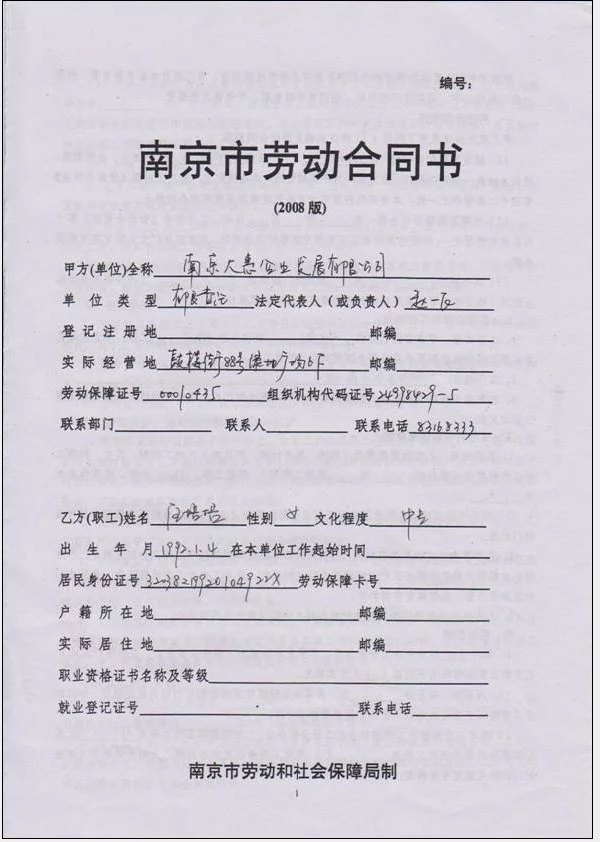 编号：
南京市劳动合同书
(2008 版)
甲方(单位)全称 南京大惠企业发展有限公司
单 位 类 型 有限责任 法定代表人（或负责人）赵一
登 记 注 册 地 邮编
实 际 经 营 地 鼓楼街88号绿地广场6F 邮编
劳动保障证号 00010435 组织机构代码证号 24998429-5
联系部门 联系人 联系电话 83168333
乙方(职工)姓名 性别 女 文化程度 中专
出 生 年 月 1992.1.4 在本单位工作起始时间
居民身份证号 劳动保障卡号
户 籍 所 在 地 邮编
实 际 居 住 地 邮编
职业资格证书名称及等级
就业登记证号 联系电话
南京市劳动和社会保障局制
1